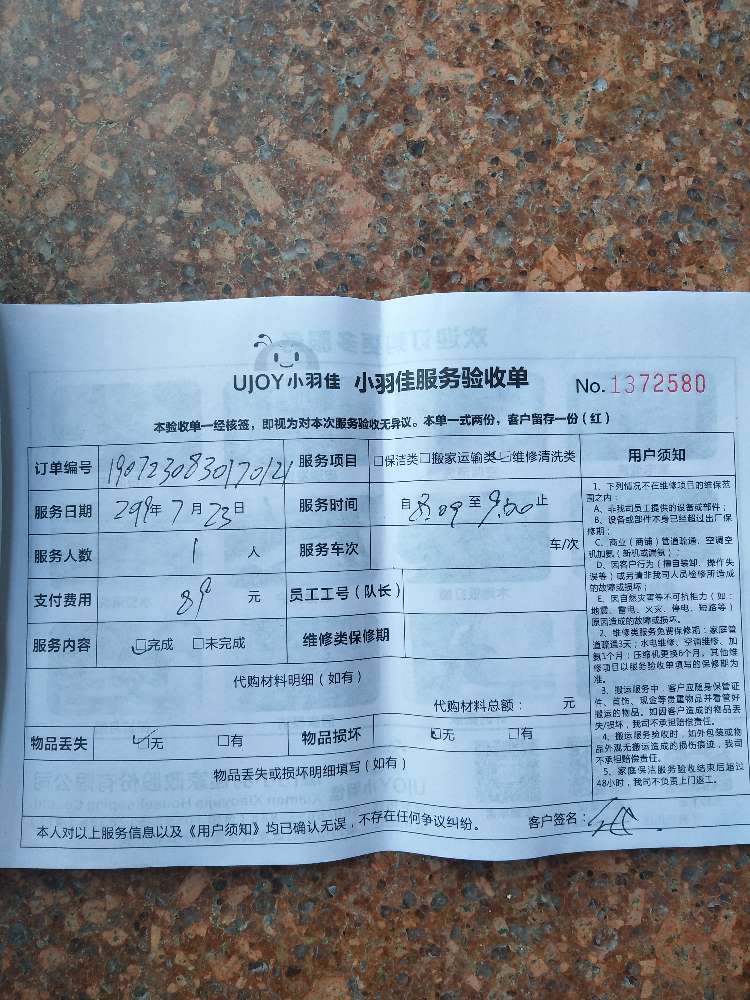 UJOY小羽佳 小羽佳服务验收单 No.1372580
本验收单一经核签，即视为对本次服务验收无异议。本单一式两份，客户留存一份（红）
订单编号 190723083017012 服务项目 □保洁类□搬家运输类☑维修清洗类
服务日期 2019年7月23日 服务时间 自8:09至9:00止
服务人数 1 人 服务车次 车/次
支付费用 89 元 员工工号（队长）
服务内容 ☑完成 □未完成 维修类保修期
代购材料明细（如有）
代购材料总额： 元
物品丢失 ☑无 □有 物品损坏 ☑无 □有
物品丢失或损坏明细填写（如有）
本人对以上服务信息以及《用户须知》均已确认无误，不存在任何争议纠纷。 客户签名：
用户须知
1、下列情况不在维修项目的维保范
围之内：
A、非我司员工提供的设备或部件；
B、设备或部件本身已经超过出厂保
修期；
C、商业（商铺）管道疏通、空调空
机加氨（新机或漏氨）；
D、因客户行为（擅自装卸、操作失
误等）或另请非我司人员检修所造成
的故障或损坏；
E、因自然灾害等不可抗拒力（如：
地震、雷电、火灾、停电、短路等）
原因造成的故障或损坏。
2、维修类服务免费保修期：家庭管
道疏通3天；水电维修、空调维修、加
氨1个月；压缩机更换6个月，其他维
修项目以服务验收单填写的保修期为
准。
3、搬运服务中，客户应随身保管证
件、首饰、现金等贵重物品并看管好
搬运的物品。如因客户造成的物品丢
失/损坏，我司不承担赔偿责任。
4、搬运服务验收时，如外包装或物
品外观无搬运造成的损伤痕迹，我司
不承担赔偿责任。
5、家庭保洁服务验收结束后超过
48小时，我司不负责上门返工。